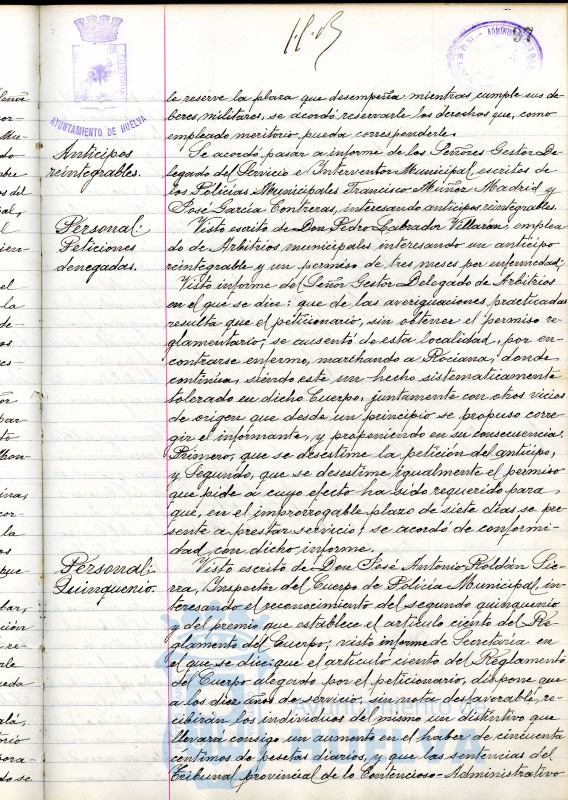 97
AYUNTAMIENTO DE HUELVA
le reserve la plaza que desempeña mientras cumple sus de-
beres militares, se acordó reservarle los derechos que, como
empleado meritorio pueda corresponderle.
Anticipos
reintegrables.
Se acordó pasar a informe de los Señores Gestor De-
legado del Servicio e Interventor Municipal, escritos de
los Policías Municipales Francisco Muñoz Madrid y
José García Contreras, interesando anticipos reintegrables.
Personal:
Peticiones
denegadas.
Visto escrito de Don Pedro Labrador Villarán, emplea-
do de Arbitrios municipales interesando un anticipo
reintegrable y un permiso de tres meses por enfermedad;
Visto informe del Señor Gestor Delegado de Arbitrios
en el que se dice: que de las averiguaciones practicadas
resulta que el peticionario, sin obtener el permiso re-
glamentario, se ausentó de esta localidad, por en-
contrarse enfermo, marchando a Rociana, donde
continúa, siendo este un hecho sistematicamente
tolerado en dicho Cuerpo, juntamente con otros vicios
de origen que desde un principio se propuso corre-
gir el informante, y proponiendo en su consecuencia:
Primero, que se desestime la petición del anticipo,
y Segundo, que se desestime igualmente el permiso
que pide a cuyo efecto ha sido requerido para
que, en el improrrogable plazo de siete dias se pre-
sente a prestar servicio; se acordó de conformi-
dad con dicho informe.
Personal:
Quinquenio.
Visto escrito de Don José Antonio Roldán Sie-
rra, Inspector del Cuerpo de Policía Municipal, in-
teresando el reconocimiento del segundo quinquenio
y del premio que establece el artículo ciento del Re-
glamento del Cuerpo; visto informe de Secretaría en
el que se dice: que el artículo ciento del Reglamento
del Cuerpo alegado por el peticionario, dispone que
a los diez años de servicio, sin nota desfavorable, re-
cibirán los individuos del mismo un distintivo que
llevará consigo un aumento en el haber de cincuenta
céntimos de pesetas diarios, y que las sentencias del
Tribunal provincial de lo Contencioso-Administrativo
Ayuntamiento de
HUELVA